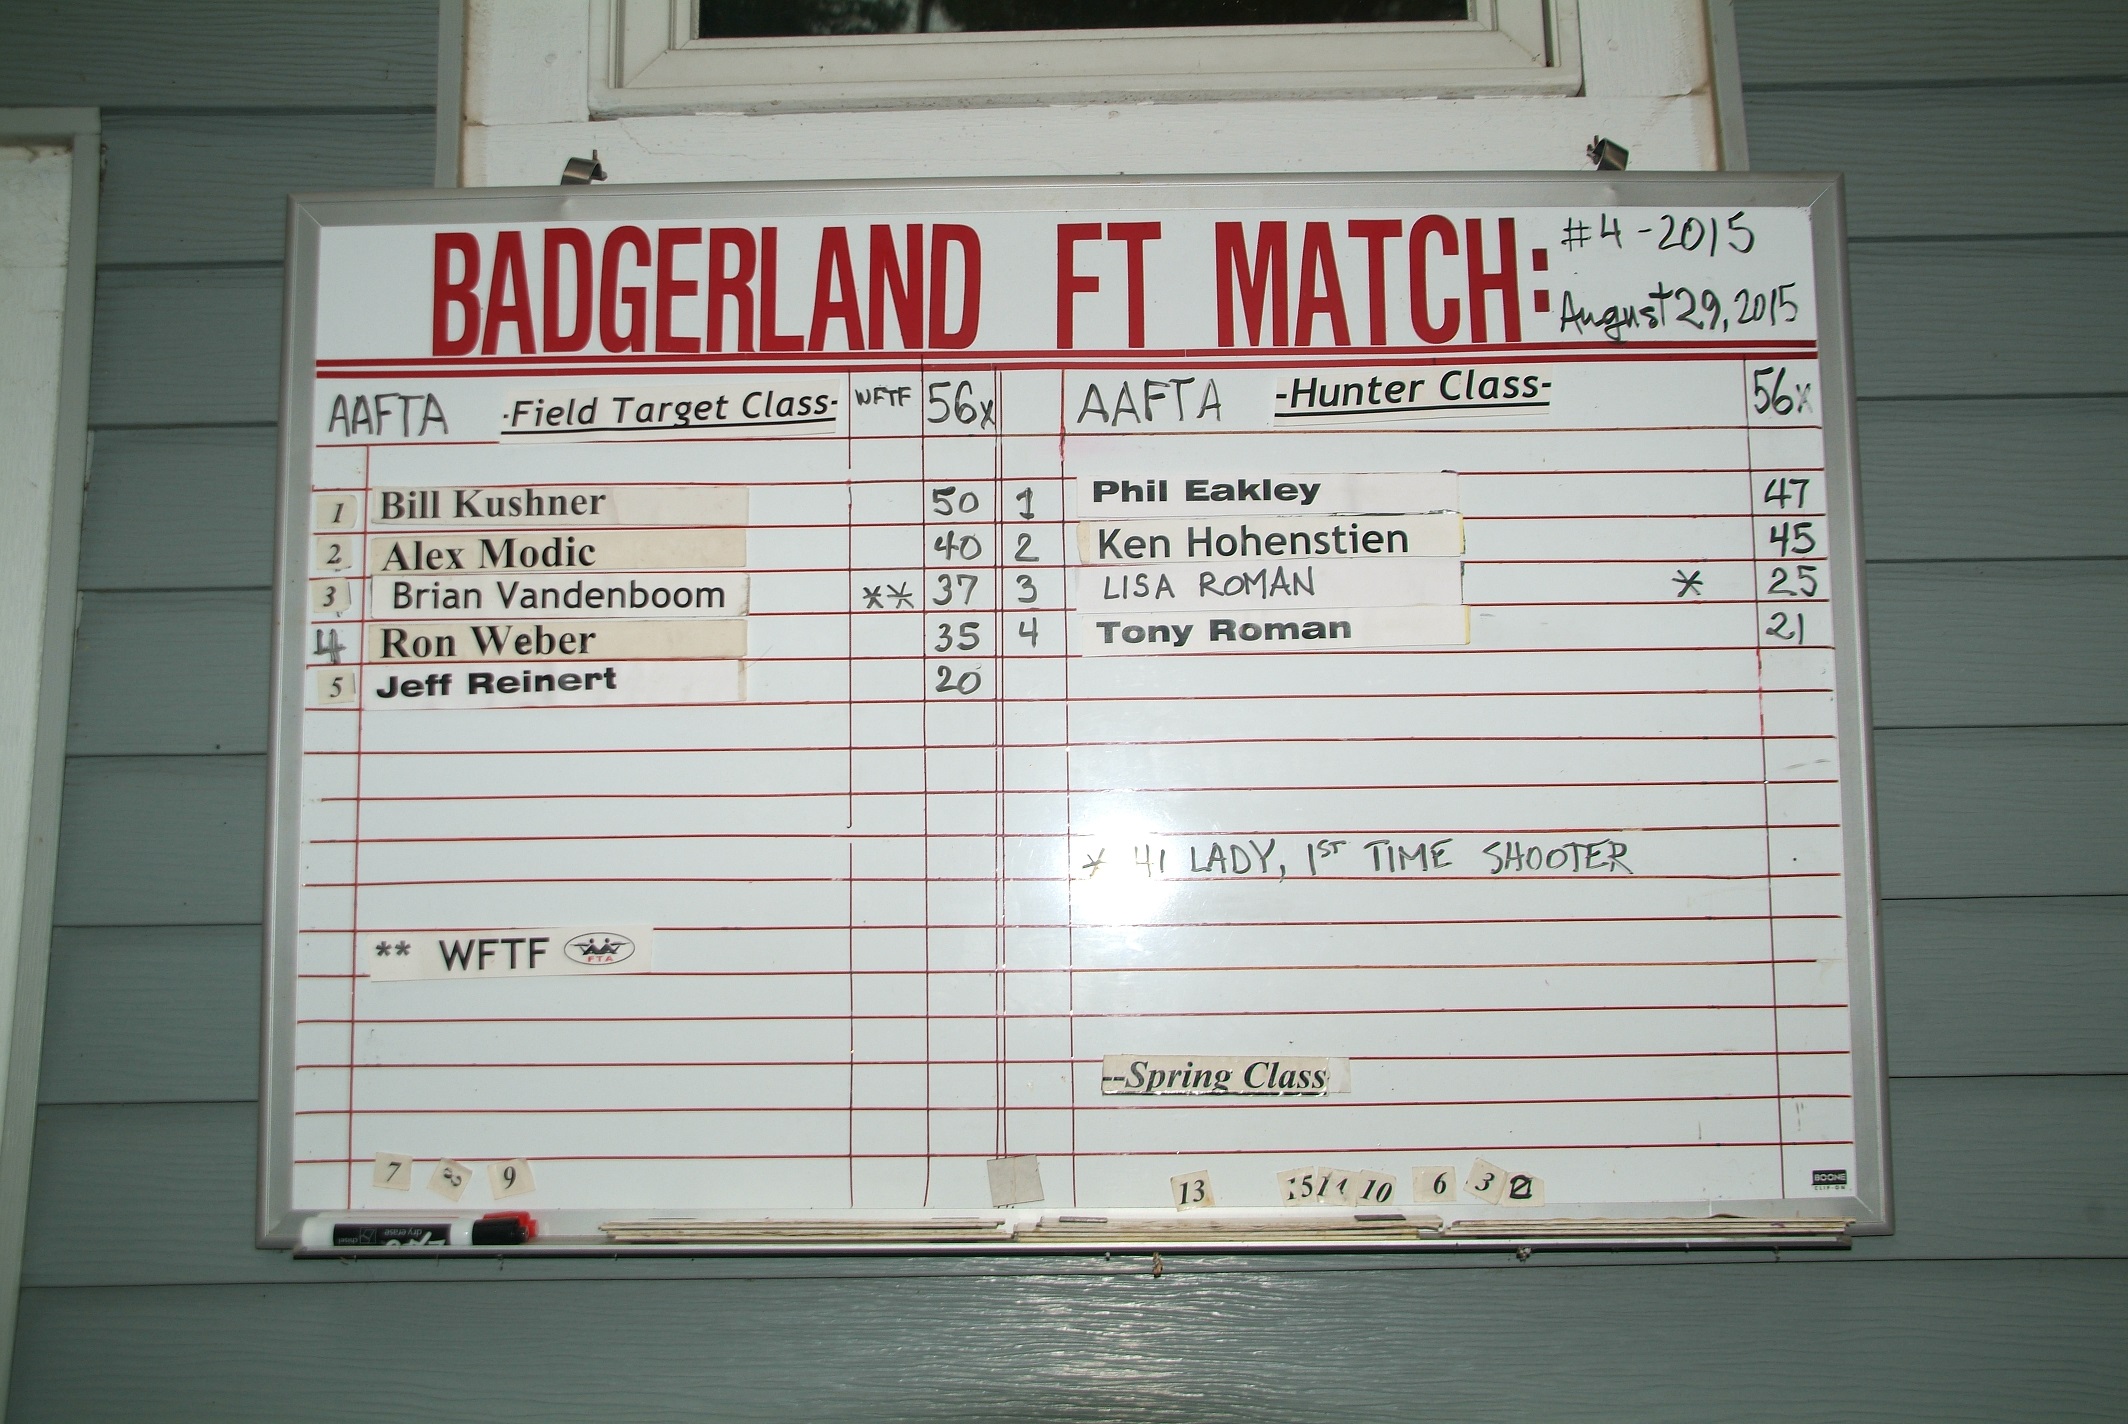 BADGERLAND FT MATCH: #4-2015
August 29, 2015
AAFTA -Field Target Class- WFTF 56x
1 Bill Kushner 50
2 Alex Modic 40
3 Brian Vandenboom ** 37
4 Ron Weber 35
5 Jeff Reinert 20
** WFTF FTA
AAFTA -Hunter Class- 56x
1 Phil Eakley 47
2 Ken Hohenstien 45
3 LISA ROMAN * 25
4 Tony Roman 21
* HI LADY, 1ST TIME SHOOTER
--Spring Class
7 8 9 13 15 14 10 6 3 2
BOONE
dry erase